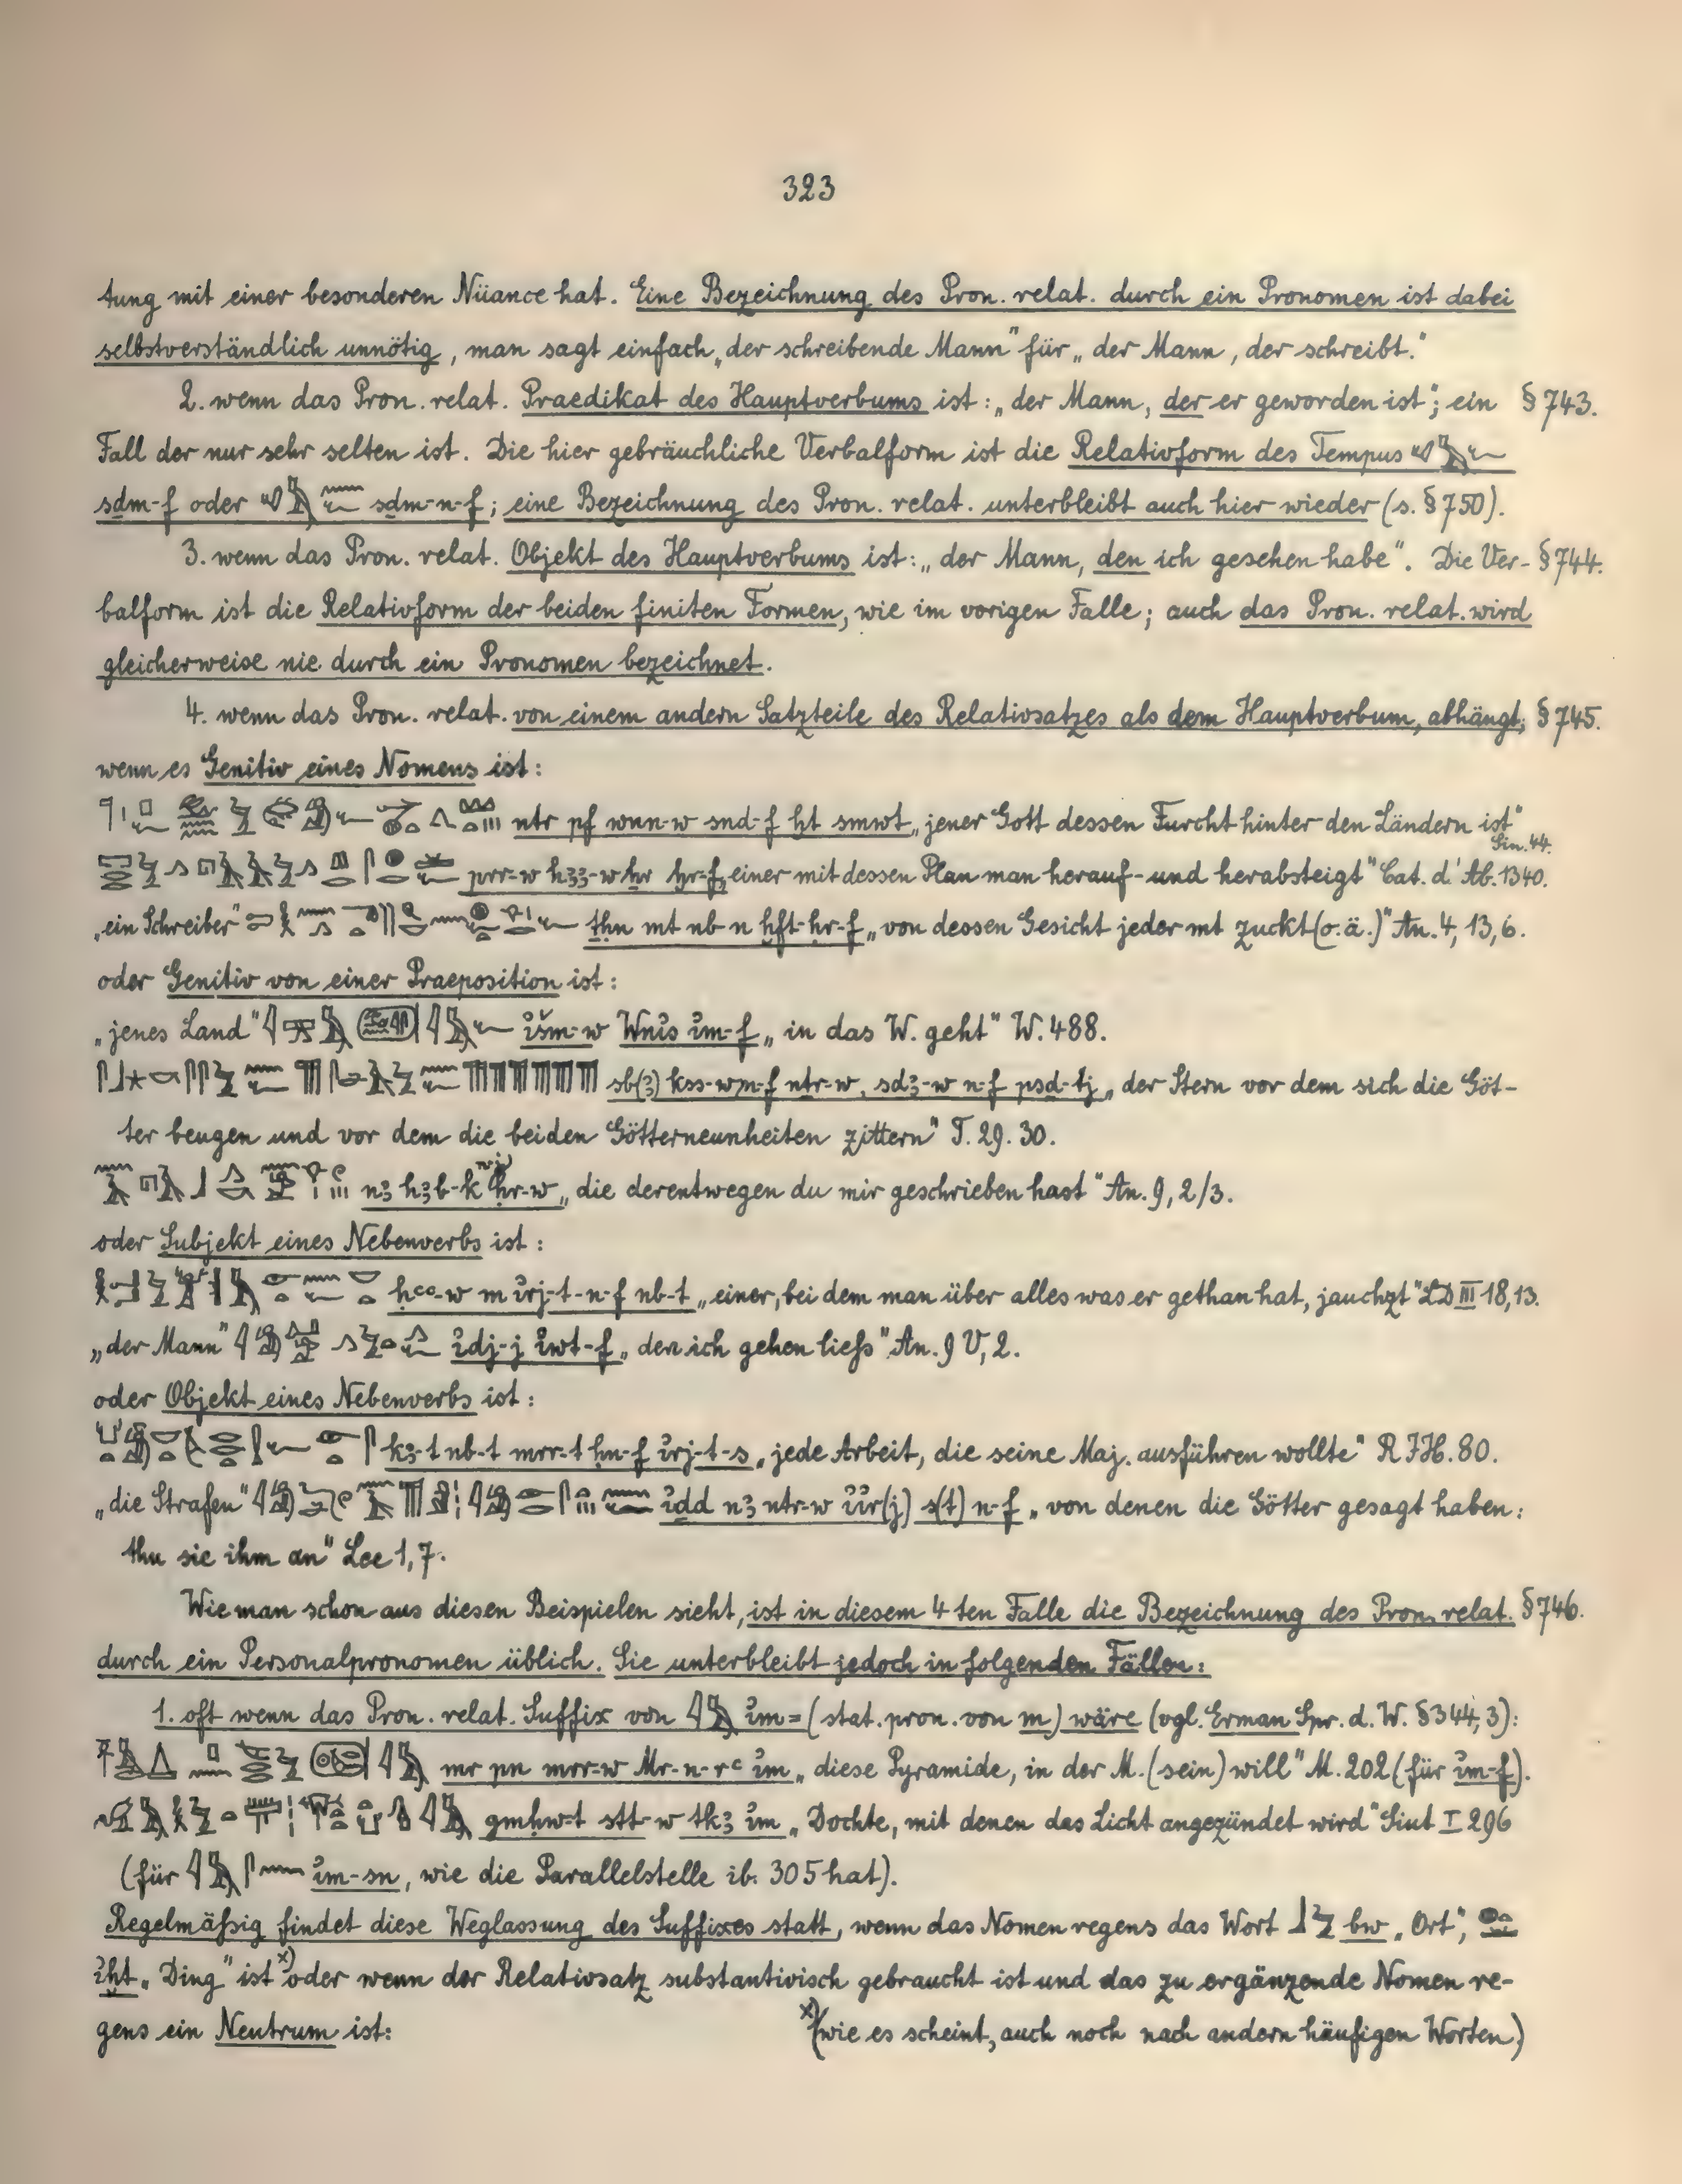 323
tung mit einer besonderen Nüance hat. Eine Bezeichnung des Pron. relat. durch ein Pronomen ist dabei
selbstverständlich unnötig, man sagt einfach „der schreibende Mann" für „der Mann, der schreibt."
2. wenn das Pron. relat. Praedikat des Hauptverbums ist: „der Mann, der er geworden ist"; ein § 743.
Fall der nur sehr selten ist. Die hier gebräuchliche Verbalform ist die Relativform des Tempus
sḏm-f oder sḏm-n-f; eine Bezeichnung des Pron. relat. unterbleibt auch hier wieder (s. § 750).
3. wenn das Pron. relat. Objekt des Hauptverbums ist: „der Mann, den ich gesehen habe". Die Ver- § 744.
balform ist die Relativform der beiden finiten Formen, wie im vorigen Falle; auch das Pron. relat. wird
gleicherweise nie durch ein Pronomen bezeichnet.
4. wenn das Pron. relat. von einem andern Satzteile des Relativsatzes als dem Hauptverbum, abhängt; § 745.
wenn es Genitiv eines Nomens ist:
nṯr pf wnn-w snḏ-f ḫt smwt „jener Gott dessen Furcht hinter den Ländern ist"
Sin. 44.
prr-w hꜣꜣ-w ḥr ḫr-f „einer mit dessen Plan man herauf- und herabsteigt" Cat. d'Ab. 1340.
„ein Schreiber" tḥn mt nb n ḫft-ḥr-f „von dessen Gesicht jeder mt zuckt (o. ä.)" An. 4, 13, 6.
oder Genitiv von einer Praeposition ist:
„jenes Land" išm-w Wnis im-f „in das W. geht" W. 488.
sb(ꜣ) kss-w n-f nṯr-w, sdꜣ-w n-f psḏ-tj „der Stern vor dem sich die Göt-
ter beugen und vor dem die beiden Götterneunheiten zittern" T. 29. 30.
nꜣ hꜣb-k n-j ḥr-w „die derentwegen du mir geschrieben hast" An. 9, 2/3.
oder Subjekt eines Nebenverbs ist:
ḥꜥꜥ-w m irj-t-n-f nb-t „einer, bei dem man über alles was er gethan hat, jauchzt" LD III 18, 13.
„der Mann" idj-j iwt-f „den ich gehen ließs" An. 9 V, 2.
oder Objekt eines Nebenverbs ist:
kꜣ-t nb-t mrr-t ḥn-f irj-t-s „jede Arbeit, die seine Maj. ausführen wollte" R I H. 80.
„die Strafen" iḏd nꜣ nṯr-w iir(j) s(t) n-f „von denen die Götter gesagt haben:
thu sie ihm an" Lee 1, 7.
Wie man schon aus diesen Beispielen sieht, ist in diesem 4ten Falle die Bezeichnung des Pron. relat. § 746.
durch ein Personalpronomen üblich. Sie unterbleibt jedoch in folgenden Fällen:
1. oft wenn das Pron. relat. Suffix von im= (stat. pron. von m) wäre (vgl. Erman Spr. d. W. § 344, 3):
mr pn mrr-w Mr-n-rꜥ im „diese Pyramide, in der M. (sein) will" M. 202 (für im-f).
gmḥw-t stt-w tkꜣ im „Dochte, mit denen das Licht angezündet wird" Siut I 296
(für im-sn, wie die Parallelstelle ib. 305 hat).
Regelmäßig findet diese Weglassung des Suffixes statt, wenn das Nomen regens das Wort bw „Ort",
iḫt „Ding" ist x) oder wenn der Relativsatz substantivisch gebraucht ist und das zu ergänzende Nomen re-
gens ein Neutrum ist:
x) (wie es scheint, auch noch nach andern häufigen Worten)